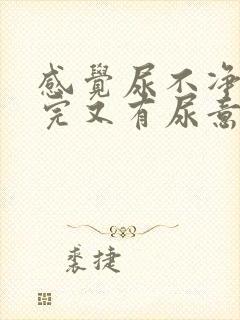 感覺尿不净
完又有尿意
裘捷